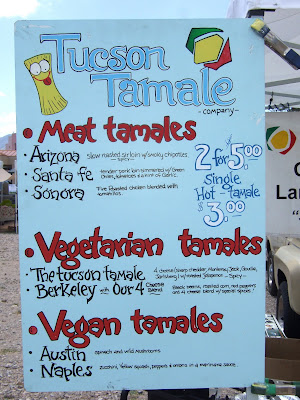 Tucson
Tamale
-company-
• Meat tamales
• Arizona slow roasted sirloin w/smoky chipotles.
-spicy-
• Santa fe tender pork loin simmered w/Green
Chiles, tomatoes & a hint of Garlic.
• Sonora Fire Roasted chicken blended with
tomatillos.
2 for $5.00
Single
Hot Tamale
$3.00
• Vegetarian tamales
• The tucson tamale 4 cheese (sharp cheddar, Monterey Jack,
w/roasted Jalapenos -Spicy-
• Berkeley with Our 4 Cheese Blend Black beans, roasted corn, red peppers
and 4 cheese blend w/special spices!
• Vegan tamales
• Austin spinach and wild mushrooms
• Naples zucchini, Yellow squash, peppers & onions in a marinara sauce